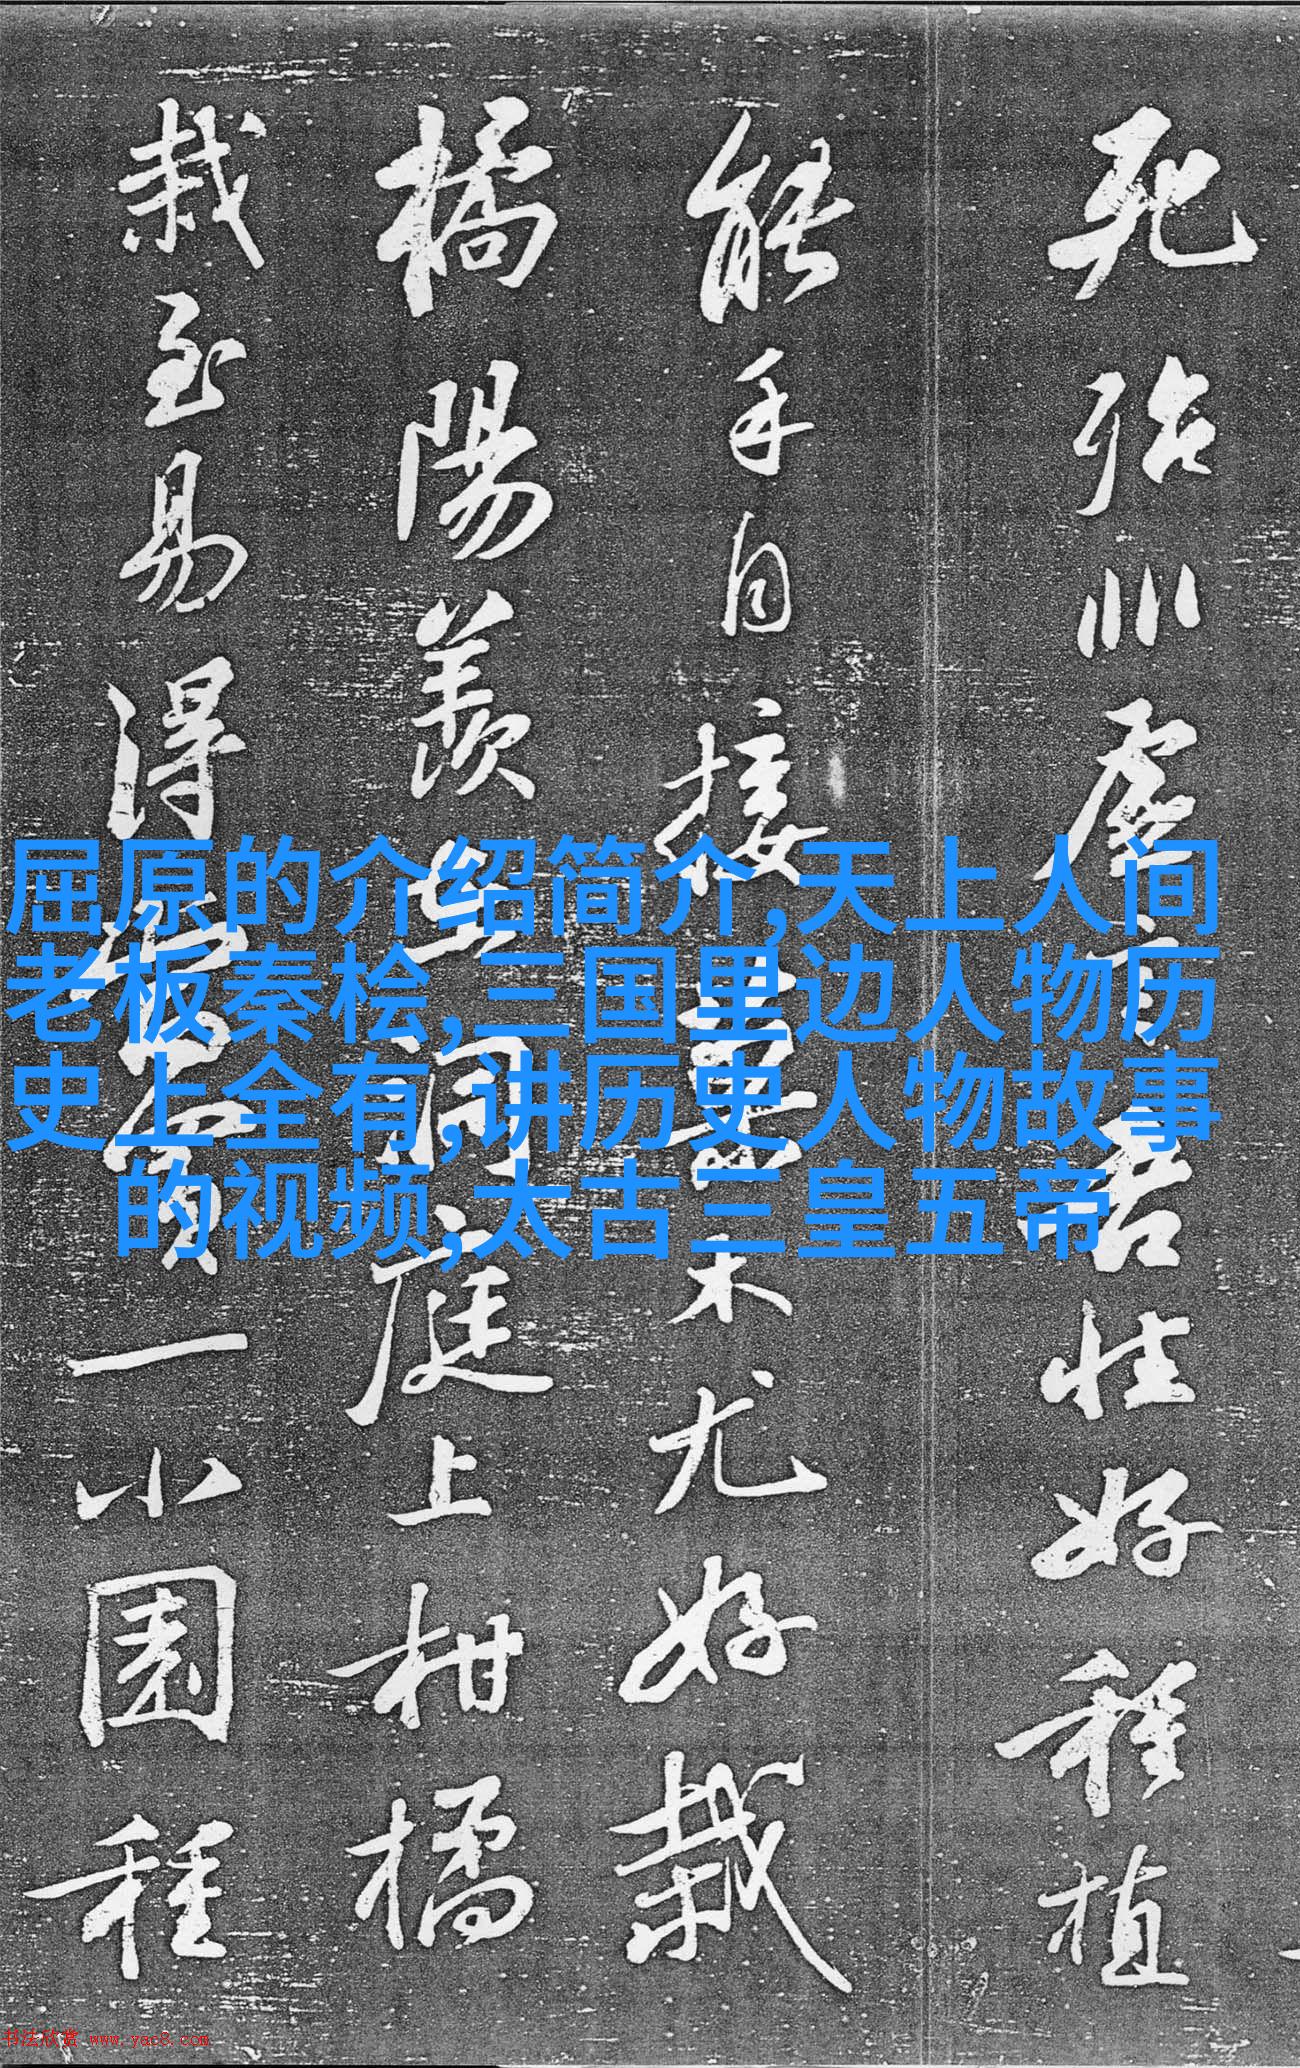 死殆非虛言吾性好種植
能手自接果木尤好栽
橘陽羨在洞庭上柑橘
栽至易得當買一小園種
屈原的介绍简介,天上人间
老板秦桧,三国里边人物历
史上全有,讲历史人物故事
的视频,太古三皇五帝
书法欣赏 www.yac8.com